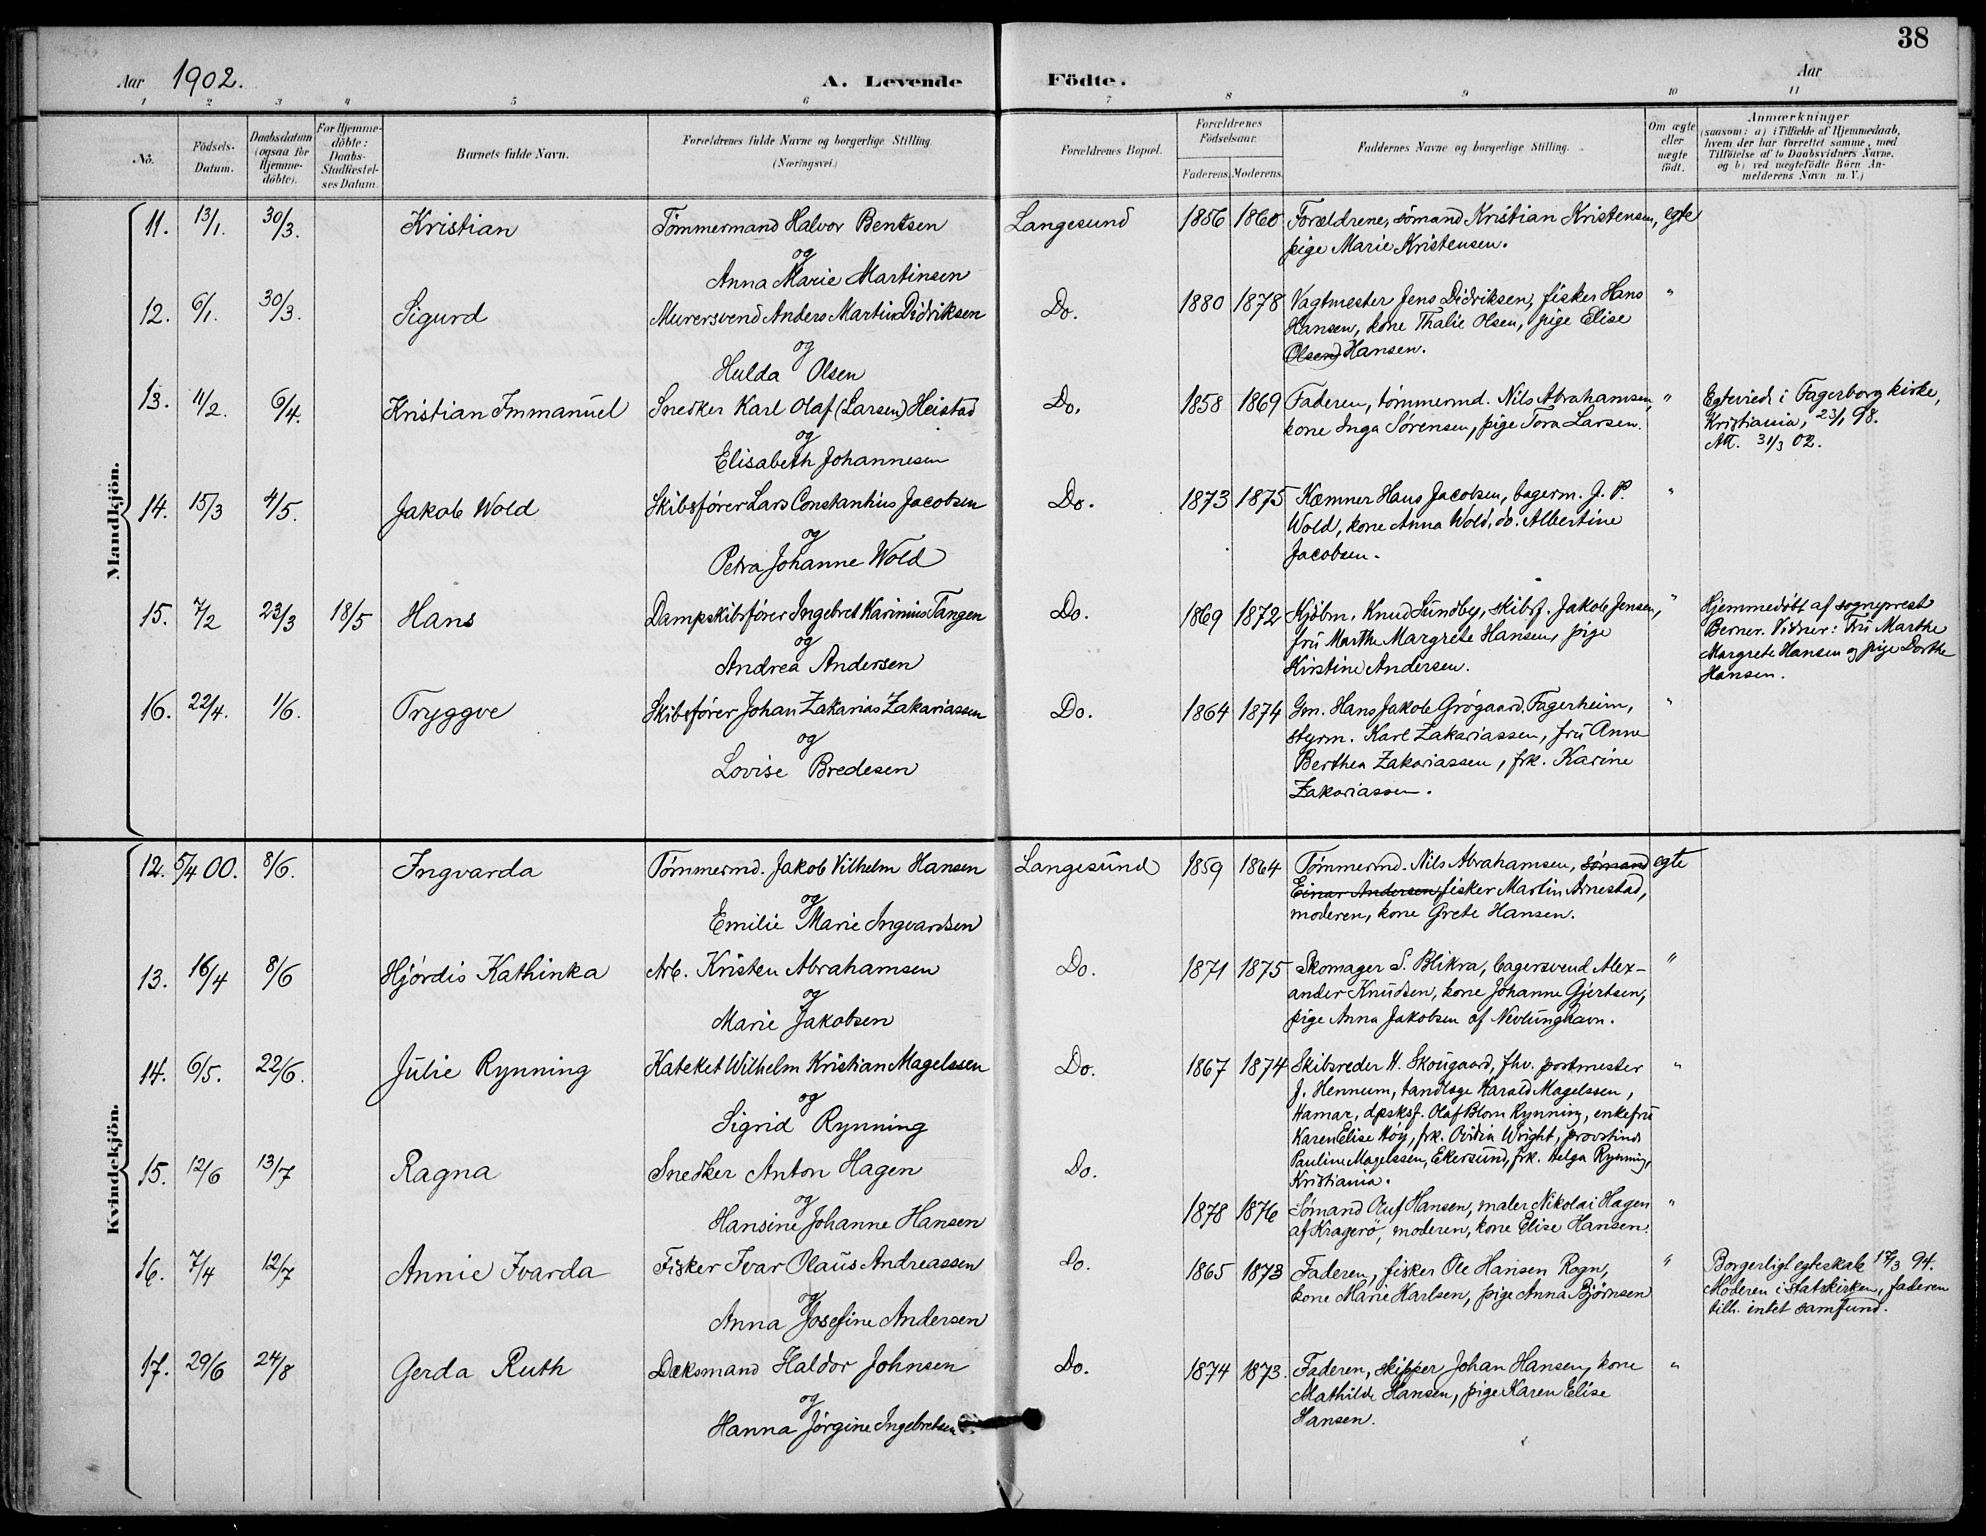 38
Aar 1902.
A. Levende Födte.
Aar
1 2 3 4 5 6 7 8 9 10 11
No.
Födsels-Datum.
Daabsdatum (ogsaa for Hjemme-döbte).
For Hjemme-döbte: Daabs-Stadfæstel-ses Datum.
Barnets fulde Navn.
Forældrenes fulde Navne og borgerlige Stilling. (Næringsvei.)
Forældrenes Bopæl.
Forældrenes Födselsaar.
Faderens. Moderens.
Faddernes Navne og borgerlige Stilling.
Om ægte eller uægte födt.
Anmærkninger
(saasom: a) i Tilfælde af Hjemmedaab,
hvem der har forrettet samme, med
Tilföielse af to Daabsvidners Navne,
og b) ved uægtefödte Börn An-
melderens Navn m. V.)
Mandkjön.
11. 13/1. 30/3. Kristian Tømmermand Halvor Bentsen Langesund 1856 1860 Forældrene, sømand Kristian Kristensen, egte
og pige Marie Kristensen.
Anna Marie Martinsen
12. 6/1. 30/3. Sigurd Murersvend Anders Martin Didriksen Do. 1880 1878 Vagtmester Jens Didriksen, fisker Hans "
og Hansen, kone Thalie Olsen, pige Elise
Hulda Olsen (Olsen) Hansen.
13. 11/2. 6/4. Kristian Immanuel Snedker Karl Olaf (Larsen) Heistad Do. 1858 1869 Faderen, tømmermd. Nils Abrahamsen, " Egteviede i Fagerborg kirke,
og kone Inga Sørensen, pige Tora Larsen. Kristiania, 23/1 98.
Elisabeth Johannesen Att. 31/3 02.
14. 15/3 4/5. Jakob Wold Skibsfører Lars Constantius Jacobsen Do. 1873 1875 Kæmner Hans Jacobsen, bagerm. J. P. "
og Wold, kone Anna Wold, do. Albertine
Petra Johanne Wold Jacobsen.
15. 7/2 23/3 18/5 Hans Dampskibsfører Ingebret Karinius Tangen Do. 1869 1872 Kjøbm. Knud Sundby, skibsf. Jakob Jensen, " Hjemmedøbt af sogneprest
og frú Marthe Margrete Hansen, pige Berner. Vidner: Frú Marthe
Andrea Andersen Kirstine Andersen. Margrete Hansen og pige Dorthe
Hansen.
16. 22/4. 1/6. Tryggve Skibsfører Johan Zakarias Zakariassen Do. 1864 1874 Hans Jakob Grøgaard, Fagerheim, "
og styrm. Karl Zakariassen, frú Anne
Lovise Bredesen Berthea Zakariassen, frk. Karine
Zakariassen.
Kvindekjön.
12. 5/4 00. 8/6. Ingvarda Tømmermd. Jakob Vilhelm Hansen Langesund 1859 1864 Tømmermd. Nils Abrahamsen, sømand egte
og Einar Andersen, fisker Martin Arnestad,
Emilie Marie Ingvardsen moderen, kone Grete Hansen.
13. 16/4 8/6 Hjørdis Kathinka Arb. Kristen Abrahamsen Do. 1871 1875 Skomager S. Blikra, bagersvend Alex- "
og ander Knudsen, kone Johanne Gjertsen,
Marie Jakobsen pige Anna Jakobsen af Nevlunghavn.
14. 6/5. 22/6. Julie Rynning Kateket Wilhelm Kristian Magelssen Do. 1867 1874 Skibsreder H. Skougaard, fhv. postmester "
og J. Hennum, tandlæge Harald Magelssen,
Sigrid Rynning Hamar, dpsksf. Olaf Blom Rynning, enkefrú
Karen Elise Höy, frk. Ovidia Wright, provstinde
Pauline Magelssen, Ekersund, frk. Helga Rynning,
Kristiania.
15. 12/6 13/7 Ragna Snedker Anton Hagen Do. 1878 1876 Sømand Oluf Hansen, maler Nikolai Hagen "
og af Kragerö, moderen, kone Elise Hansen.
Hansine Johanne Hansen
16. 7/4 12/7 Annie Ivarda Fisker Ivar Olaus Andreassen Do. 1865 1873 Faderen, fisker Ole Hansen Rogn, " Borgerligt egteskab 17/3 94.
og kone Marie Karlsen, pige Anna Bjørnsen Moderen i Statskirken, faderen
Anna Josefine Andersen tilh. intet samfund.
17. 29/6 24/8 Gerda Ruth Dæksmand Haldor Johnsen Do. 1874 1873. Faderen, skipper Johan Hansen, kone "
og Mathilde Hansen, pige Karen Elise
Hanna Jørgine Ingebretsen. Hansen.